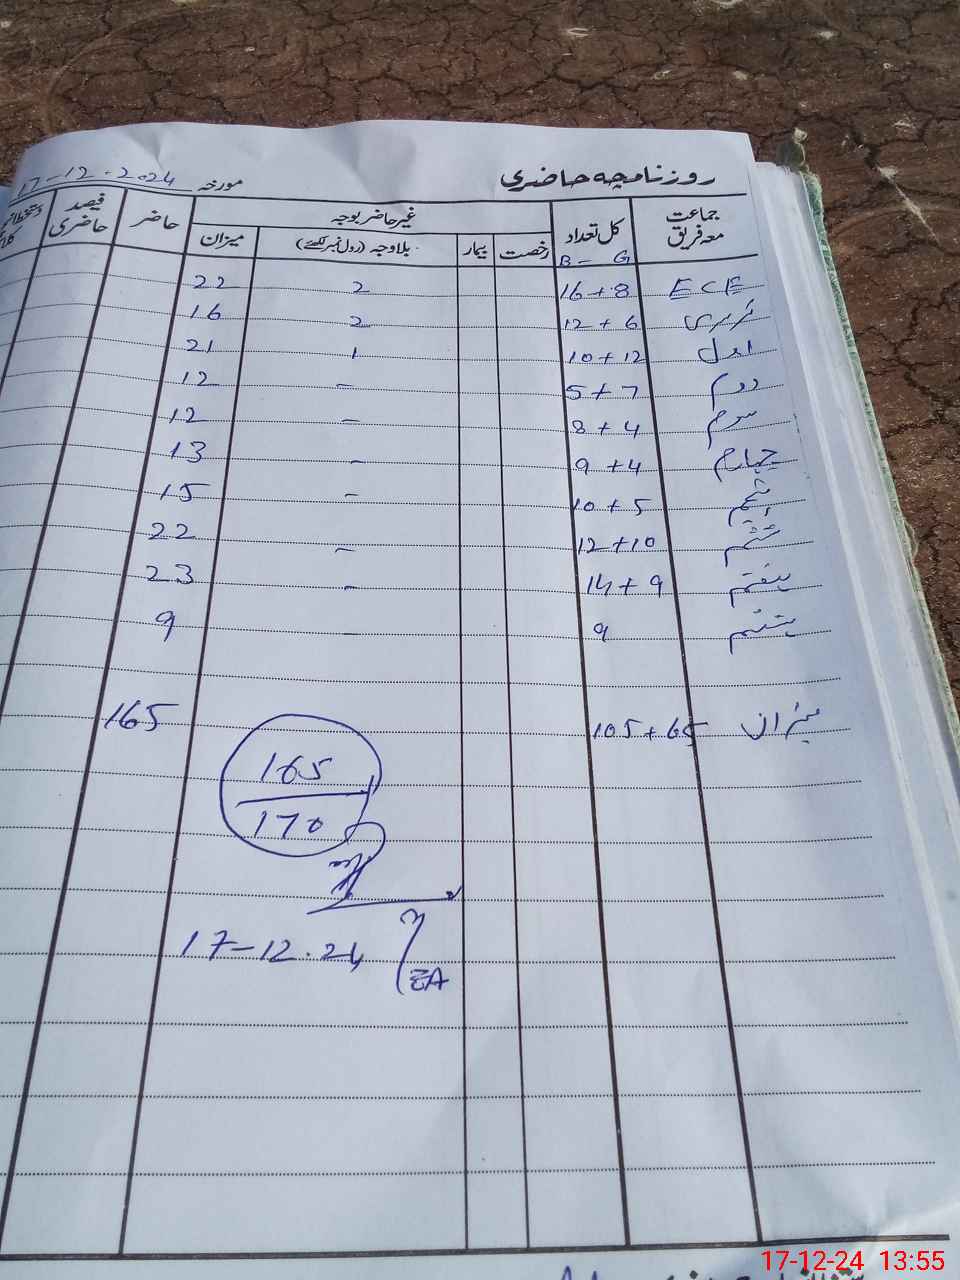 روزنامچہ حاضری مورخہ 17-12-2024
جماعت معہ فریق کل تعداد غیر حاضر بوجہ حاضر فیصد حاضری
B - G رخصت بیمار بلاوجہ (رول نمبر لکھئے) میزان
ECE 16+8 2 22
نرسری 12+6 2 16
اول 10+12 1 21
دوم 5+7 - 12
سوم 8+4 - 12
چہارم 9+4 - 13
پنجم 10+5 - 15
ششم 12+10 - 22
ہفتم 14+9 - 23
ہشتم 9 - 9
میزان 105+65 165
165
170
17-12.24
EA
17-12-24 13:55